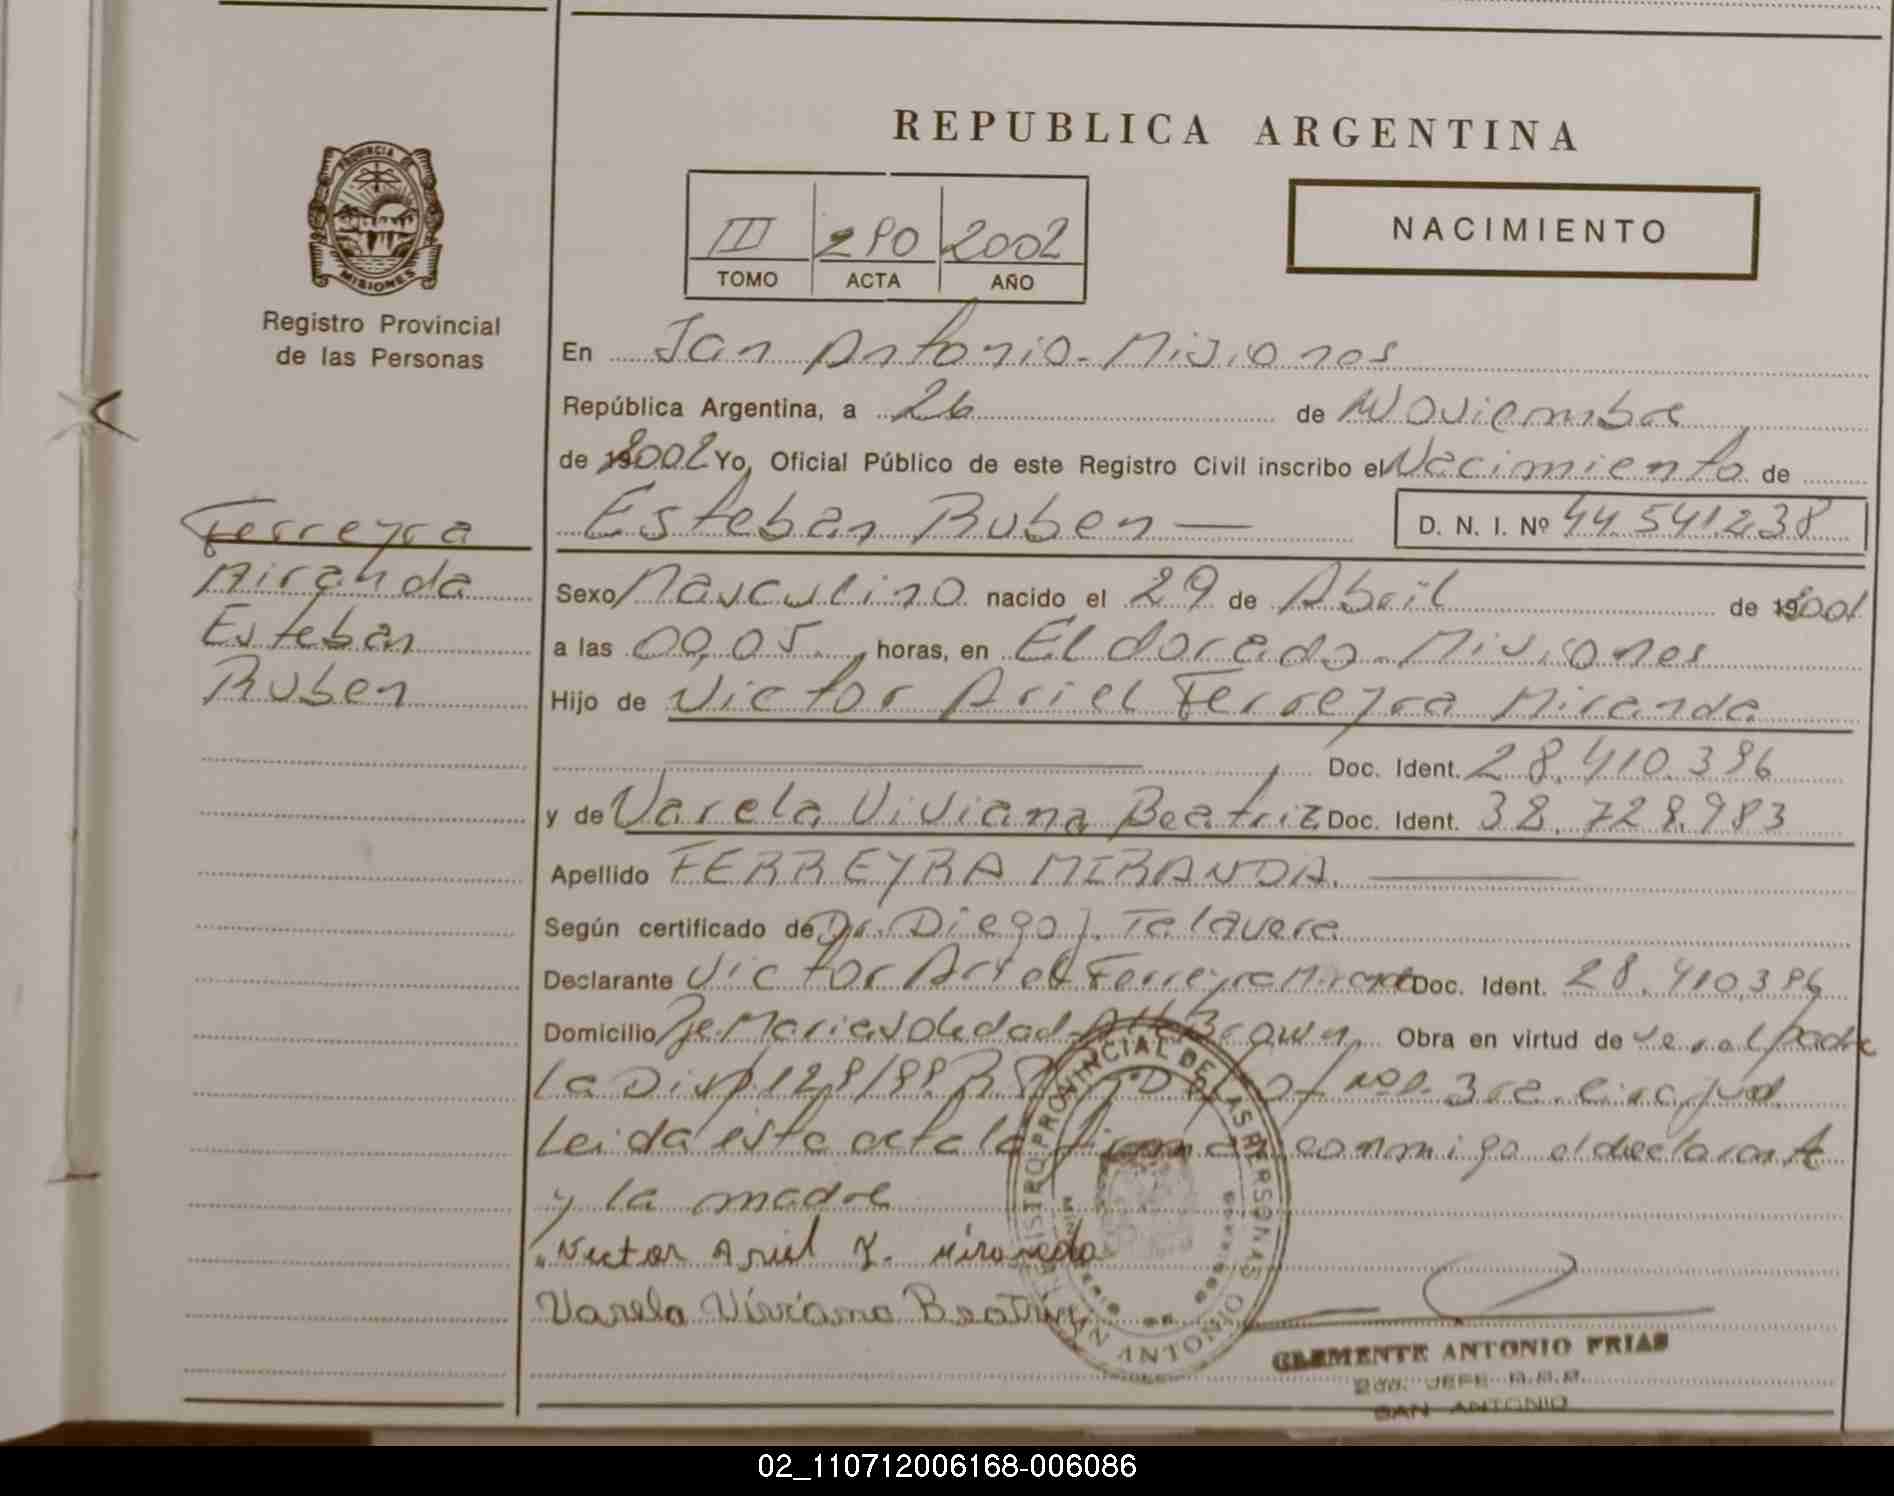 REPUBLICA ARGENTINA
PROVINCIA DE
MISIONES
Registro Provincial
de las Personas
III 290 2002
TOMO ACTA AÑO
NACIMIENTO
En San Antonio - Misiones
República Argentina, a 26 de Noviembre
de 2002 Yo, Oficial Público de este Registro Civil inscribo el Nacimiento de
Esteban Ruben — D. N. I. Nº 44.541.238
Ferreyra
Miranda
Esteban
Ruben
Sexo Masculino nacido el 29 de Abril de 2001
a las 00,05 horas, en El dorado - Misiones
Hijo de Victor Ariel Ferreyra Miranda
Doc. Ident. 28.410.396
y de Varela Viviana Beatriz Doc. Ident. 38.728.983
Apellido FERREYRA MIRANDA.
Según certificado de Dr. Diego J. Talavera
Declarante Victor Ariel Ferreyra Miranda Doc. Ident. 28.410.396
Domicilio Pje. Maria Soledad - Alte Brown Obra en virtud de ser el padre
La Disp. 128/99 3ra. circ. jud.
Leida esta acta la firman conmigo el declarante
y la madre
Victor Ariel F. Miranda
Varela Viviana Beatriz
REGISTRO PROVINCIAL DE LAS PERSONAS
SAN ANTONIO
CLEMENTE ANTONIO FRIAS
2do. JEFE R.R.P.
SAN ANTONIO
02_110712006168-006086